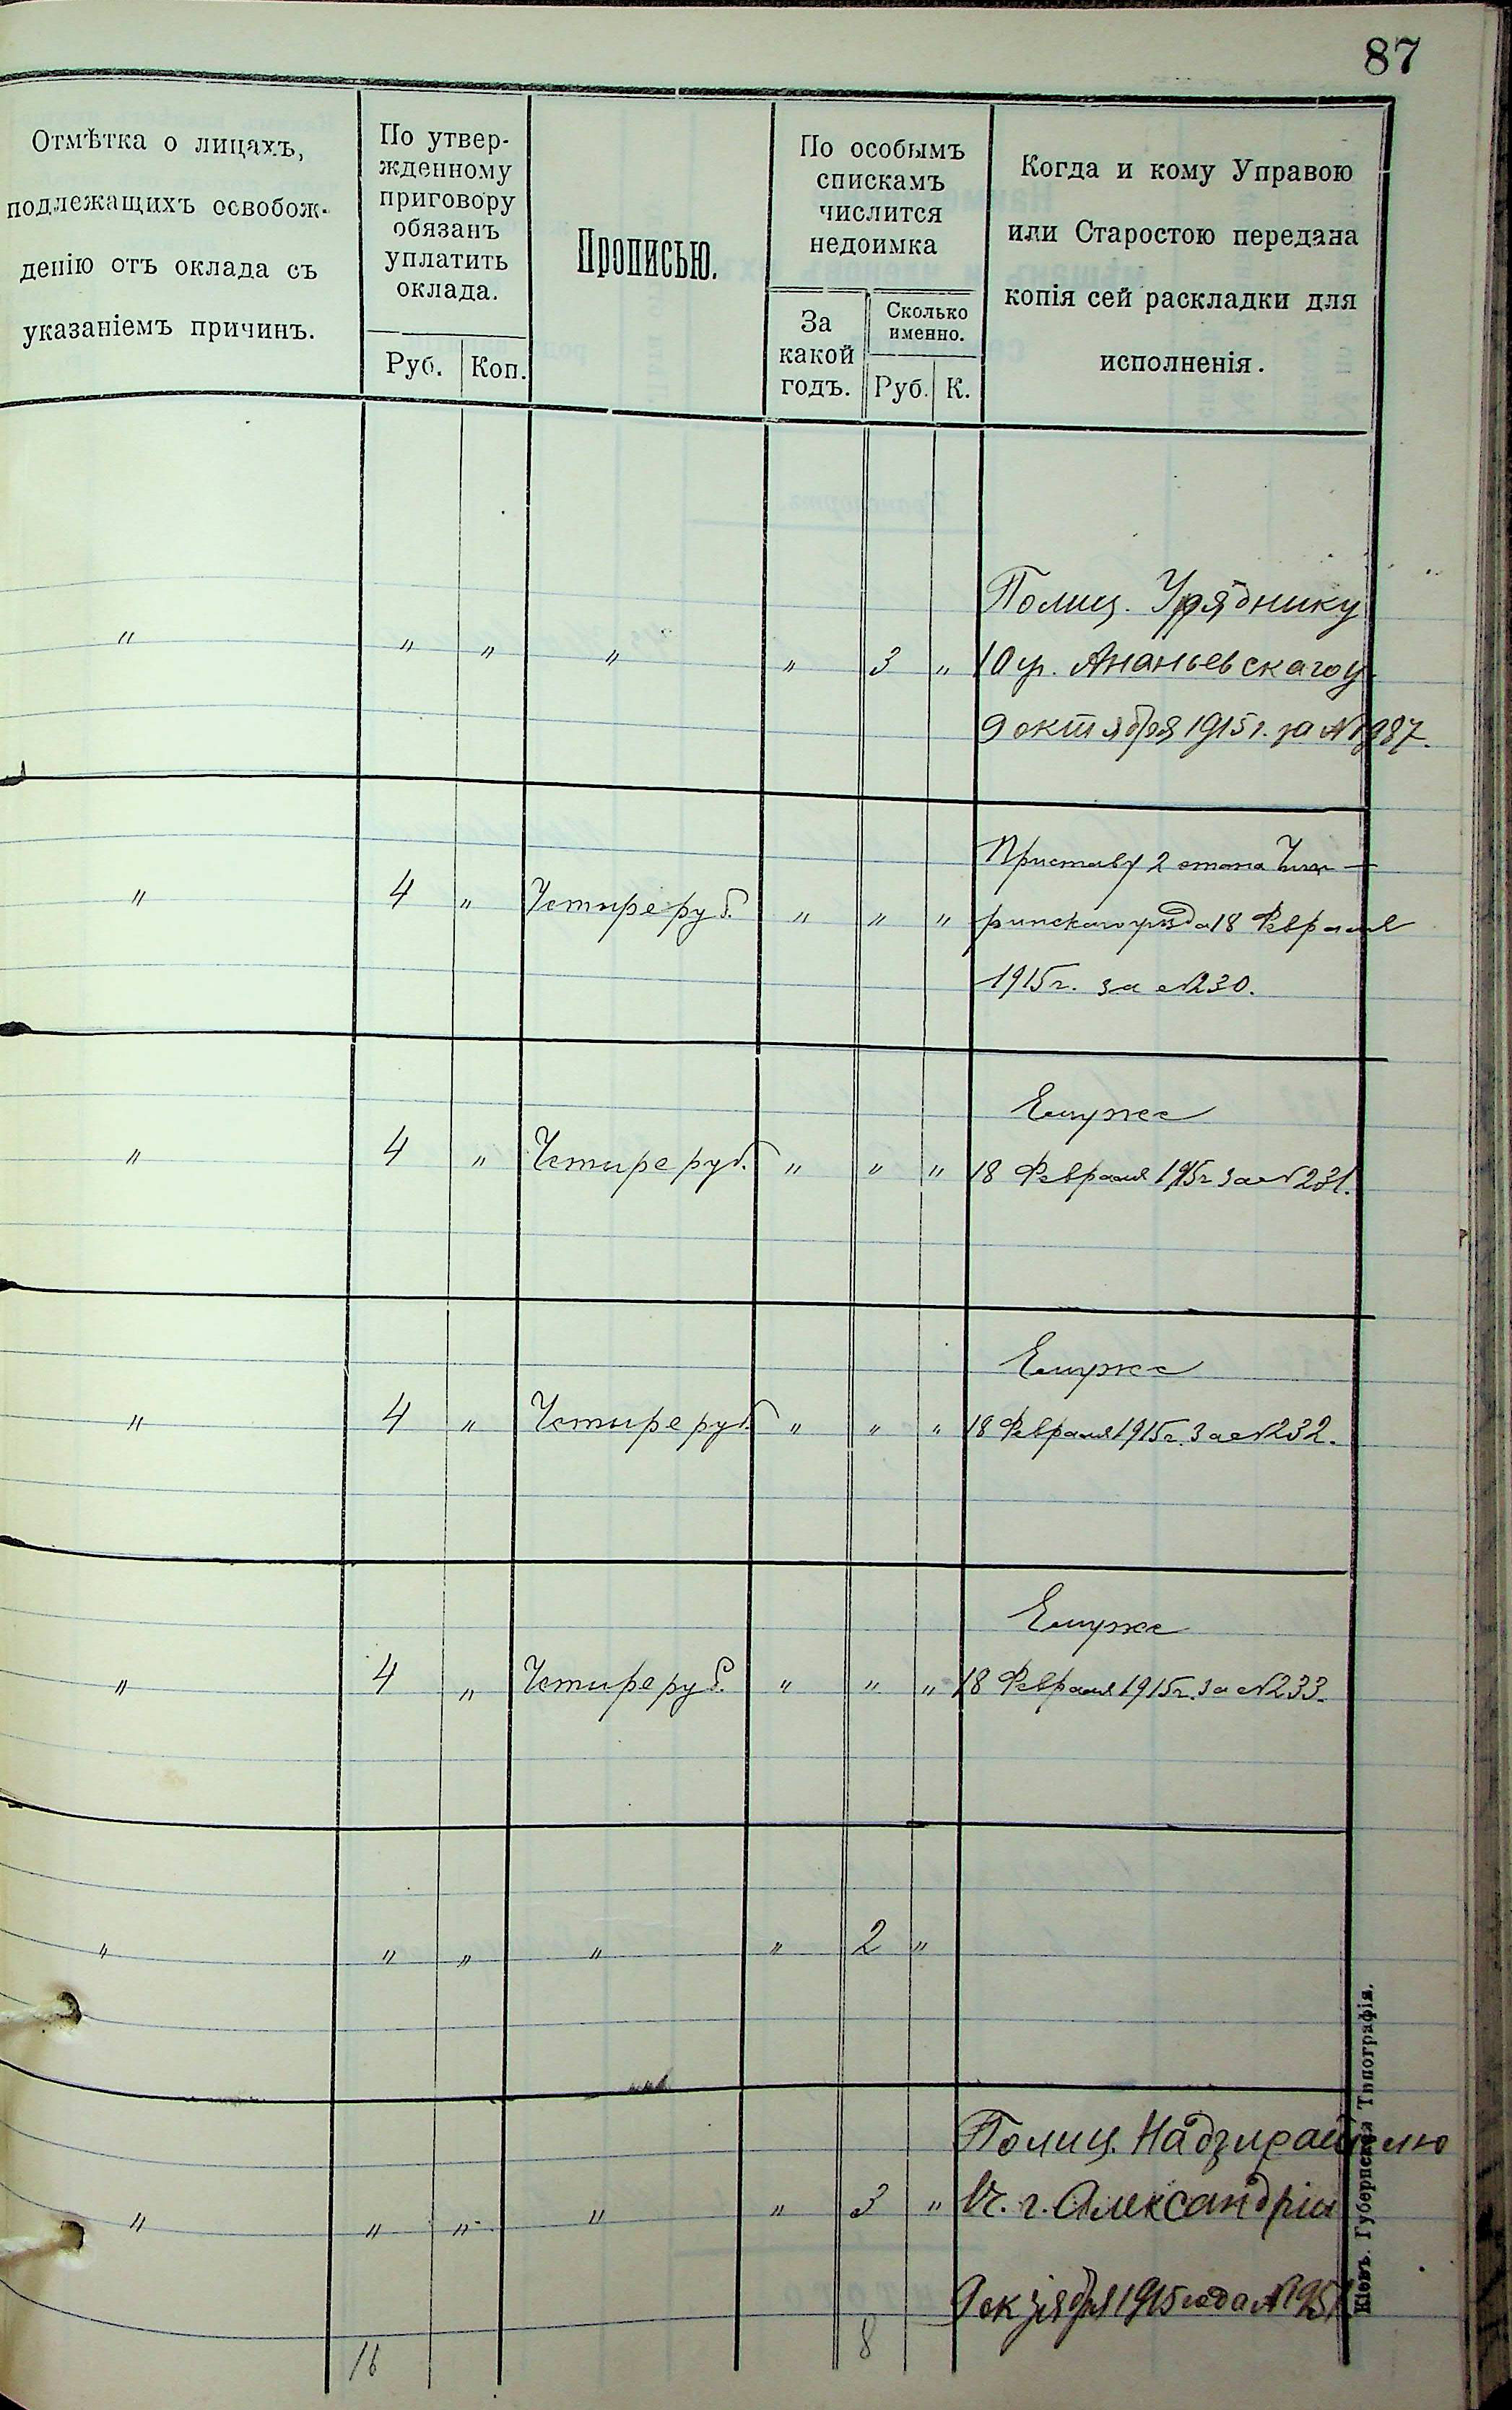 87
Отмѣтка о лицахъ,
подлежащихъ освобож-
денію отъ оклада съ
указаніемъ причинъ.
По утвер-
жденному
приговору
обязанъ
уплатить
оклада.
Руб. Коп.
Прописью.
По особымъ
спискамъ
числится
недоимка
За
какой
годъ.
Сколько
именно.
Руб. К.
Когда и кому Управою
или Старостою передана
копія сей раскладки для
исполненія.
Полиц. Уряднику
" " " " " 3 " 10 уч. Ананьевскаго у.
9 октября 1915 г. за №
Приставу 2 стана Чиги-
" 4 " Четыре руб. " " " ринскаго уѣзда 18 Февраля
1915 г. за №230.
Емуже
" 4 " Четыре руб. " " " 18 Февраля 1915 г. за №231.
Емуже
" 4 " Четыре руб. " " " 18 Февраля 1915 г. за №232.
Емуже
" 4 " Четыре руб. " " " 18 Февраля 1915 г. за №233.
" " " " " 2 "
Полиц. Надзирателю
" " " " " 3 " г. Александріи
9 октября 1915 года №
16 8
Кіевъ. Губернская Типографія.